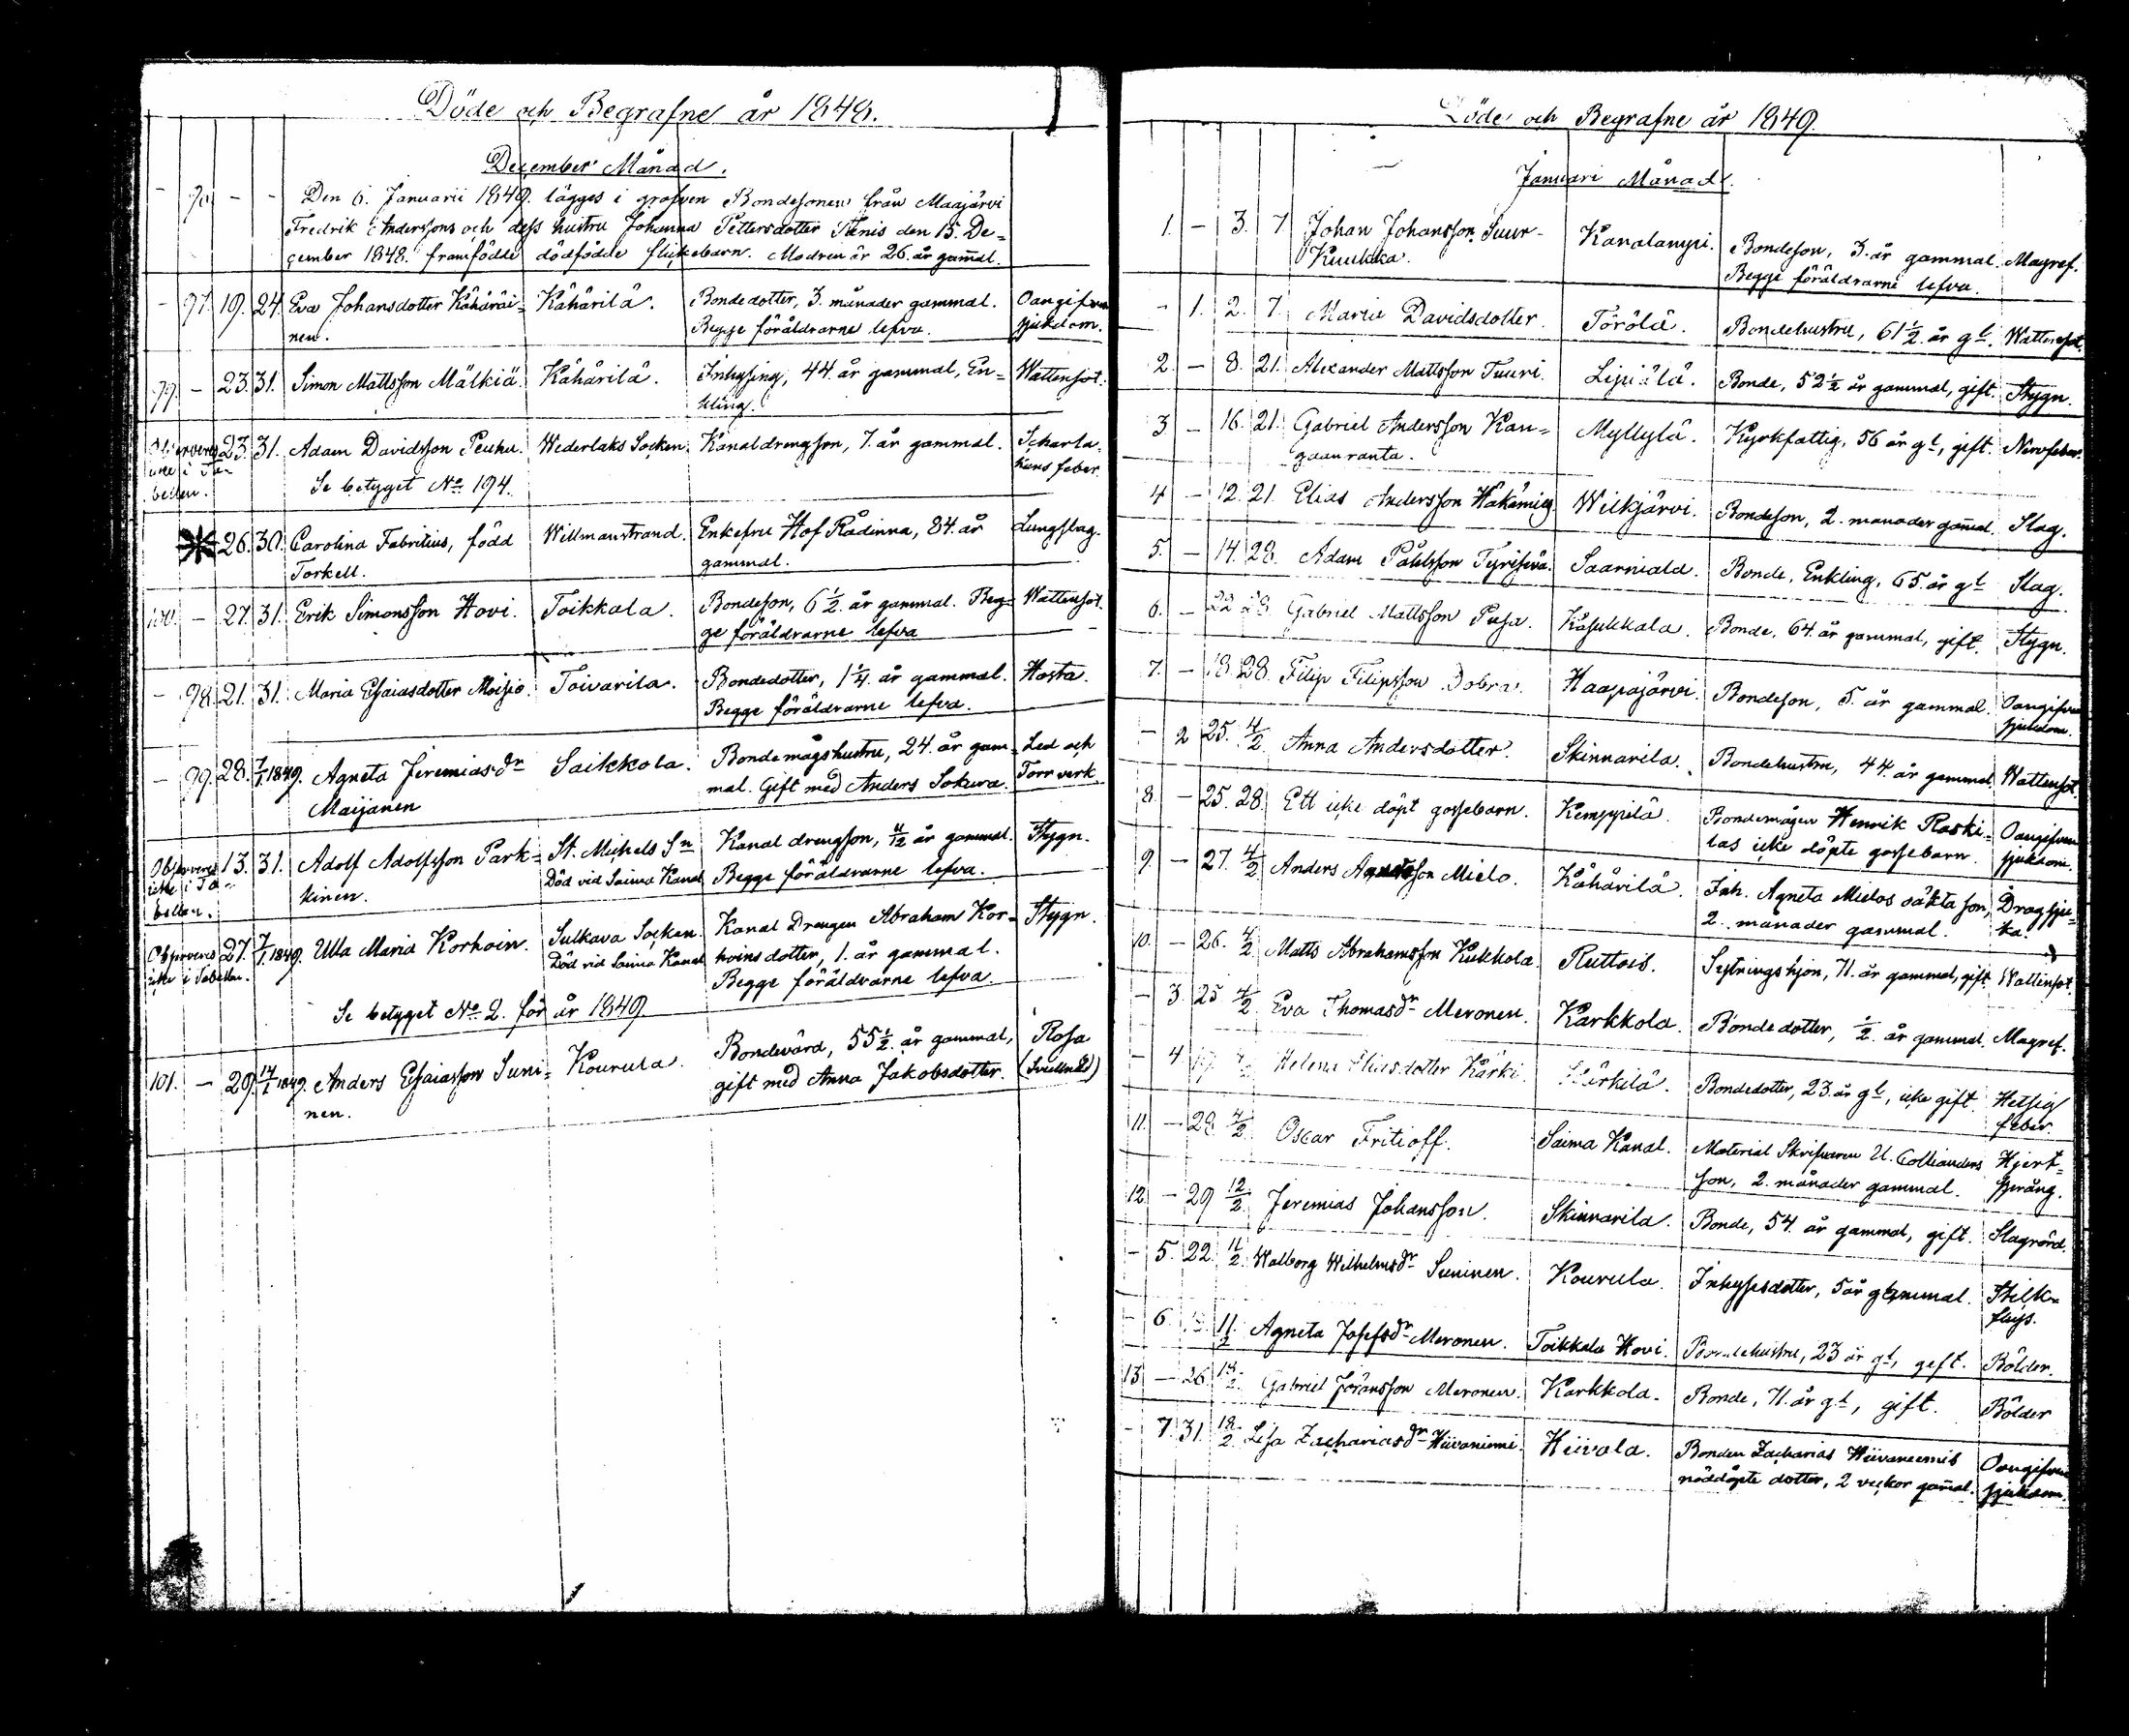 Döde och Begrafne år 1848.
December Månad.
Den 6. Januarii 1849. lägges i grafven Bondesonen från Maajärvi
Fredrik Anderssons och dess hustru Johanna Pettersdotter Tenis den 15. De=
cember 1848. framfödde dödfödde flickebarn. Modren är 26. år gam̄al.
- 97. 19. 24. Eva Johansdotter Kähäräi= Kähärilä. Bondedotter, 3. månader gammal. Oangifven
nen. Begge föräldrarne lefva. sjukdom.
99. - 23. 31. Simon Mattsson Mälkiä. Kähärilä. Inhysing, 44. år gammal, En= Wattensot.
kling.
Observeras 23. 31. Adam Davidsson Peuhu. Wederlaks Socken. Kanaldrengson, 7. år gammal. Scharla=
icke i Ta= Se betyget No 194. kans feber.
bellen.
26. 30. Carolina Fabritius, född Willmanstrand. Enkefru Hof Rådinna, 84. år Lungslag.
Torkell. gammal.
100. - 27. 31. Erik Simonsson Hovi. Toikkala. Bondeson, 6 1/2. år gammal. Beg= Wattensot.
ge föräldrarne lefva
- 98. 21. 31. Maria Esaiasdotter Moisio. Toivarila. Bondedotter, 1 1/4. år gammal. Hosta.
Begge föräldrarne lefva.
- 99. 28. 7/1 1849. Agneta Jeremiasdr Saikkola. Bondemågshustru, 24. år gam= Led och
Maijanen mal. Gift med Anders Sokura. Torrverk.
Observeras 13. 31. Adolf Adolfsson Park= St. Michels Sn Kanal drengson, 11/12 år gammal. Stygn.
icke i Ta= kinen. Död vid Saima Kanal Begge föräldrarne lefva.
bellen.
Observeras 27. 7/1 1849. Ulla Maria Korhoin. Sulkava Socken. Kanal Drengen Abraham Kor= Stygn.
icke i Tabellen. Död vid Saima Kanal hoins dotter, 1. år gammal.
Begge föräldrarne lefva.
Se betyget No 2. för år 1849.
101. - 29. 14/1 1849. Anders Esaiasson Suni= Kourula. Bondevärd, 55 1/2. år gammal, Rosa
nen. gift med Anna Jakobsdotter.
Döde och Begrafne år 1849.
Januari Månad.
1. - 3. 7 Johan Johansson Suur- Kanalanyri. Bondeson, 3. år gammal. Magref.
Kuukka. Begge föräldrarne lefva.
- 1. 2. 7. Maria Davidsdotter. Törölä. Bondehustru, 61 1/2. år gl. Wattensot.
2. - 8. 21. Alexander Mattsson Tuuri. Lipiälä. Bonde, 52 1/2 år gammal, gift. Stygn.
3 - 16. 21. Gabriel Andersson Kan= Myllylä. Kyrkfattig, 56 år gl, gift. Nervfeber.
gaanranta.
4 - 12. 21. Elias Andersson Wilkjärvi. Bondeson, 2. månader gam̄al. Slag.
5. - 14. 28. Adam Påhlsson Saarniala. Bonde, Enkling, 65. år gl Slag.
6. - 22 28. Gabriel Mattsson Pusa. Kasukkala. Bonde, 64. år gammal, gift. Stygn.
7. - 18 28. Filip Filipsson Dobra. Haapajärvi. Bondeson, 5. år gammal. Oangifven
sjukdom.
- 2 25. 4/2. Anna Andersdotter. Skinnarila. Bondehustru, 44. år gammal. Wattensot.
8. - 25. 28. Ett icke döpt gossebarn. Kemppilä. Bondemågen Henrik Raski= Oangifven
las icke döpte gossebarn. sjukdom.
9. - 27. 4/2 Anders Mielo. Kähärilä. Inh. Agneta Mielos oäkta son, Dragsju=
2. månader gammal. ka.
10. - 26. 4/2 Matts Abrahamsson Kukkola. Ruttois. Sytningshjon, 71. år gammal, gift. Wattensot.
- 3. 25 4/2 Eva Thomasdr Meronen. Karkkola. Bondedotter, 1/2. år gammal. Magref.
- 4 Helena Eliasdotter Kärki. Kärkilä. Bondedotter, 23. år gl, icke gift. Hetsig
feber.
11. - 28 4/2 Oscar Fritioff. Saima Kanal. Material Skrifvaren U. Collianders Hjert=
son, 2. månader gammal. språng.
12. - 29 12/2 Jeremias Johansson. Skinnarila. Bonde, 54. år gammal, gift. Slagrörd.
- 5. 22. 11/2 Walborg Wilhelmsdr Suninen. Kourula. Inhysesdotter, 5 år gammal.
- 6. 11/2. Agneta Josefsdr Meronen. Toikkala Hovi. Bondehustru, 23 år gl, gift. Bölder.
13 - 26. 18/2. Gabriel Jöransson Meronen. Karkkola. Bonde, 71. år gl, gift. Bölder
- 7. 31. 18/2. Lisa Zachariasdr Hiivaniemi. Hiivala. Bonden Zacharias Hiivaniemis Oangifven
nöddöpte dotter, 2 veckor gam̄al. sjukdom.